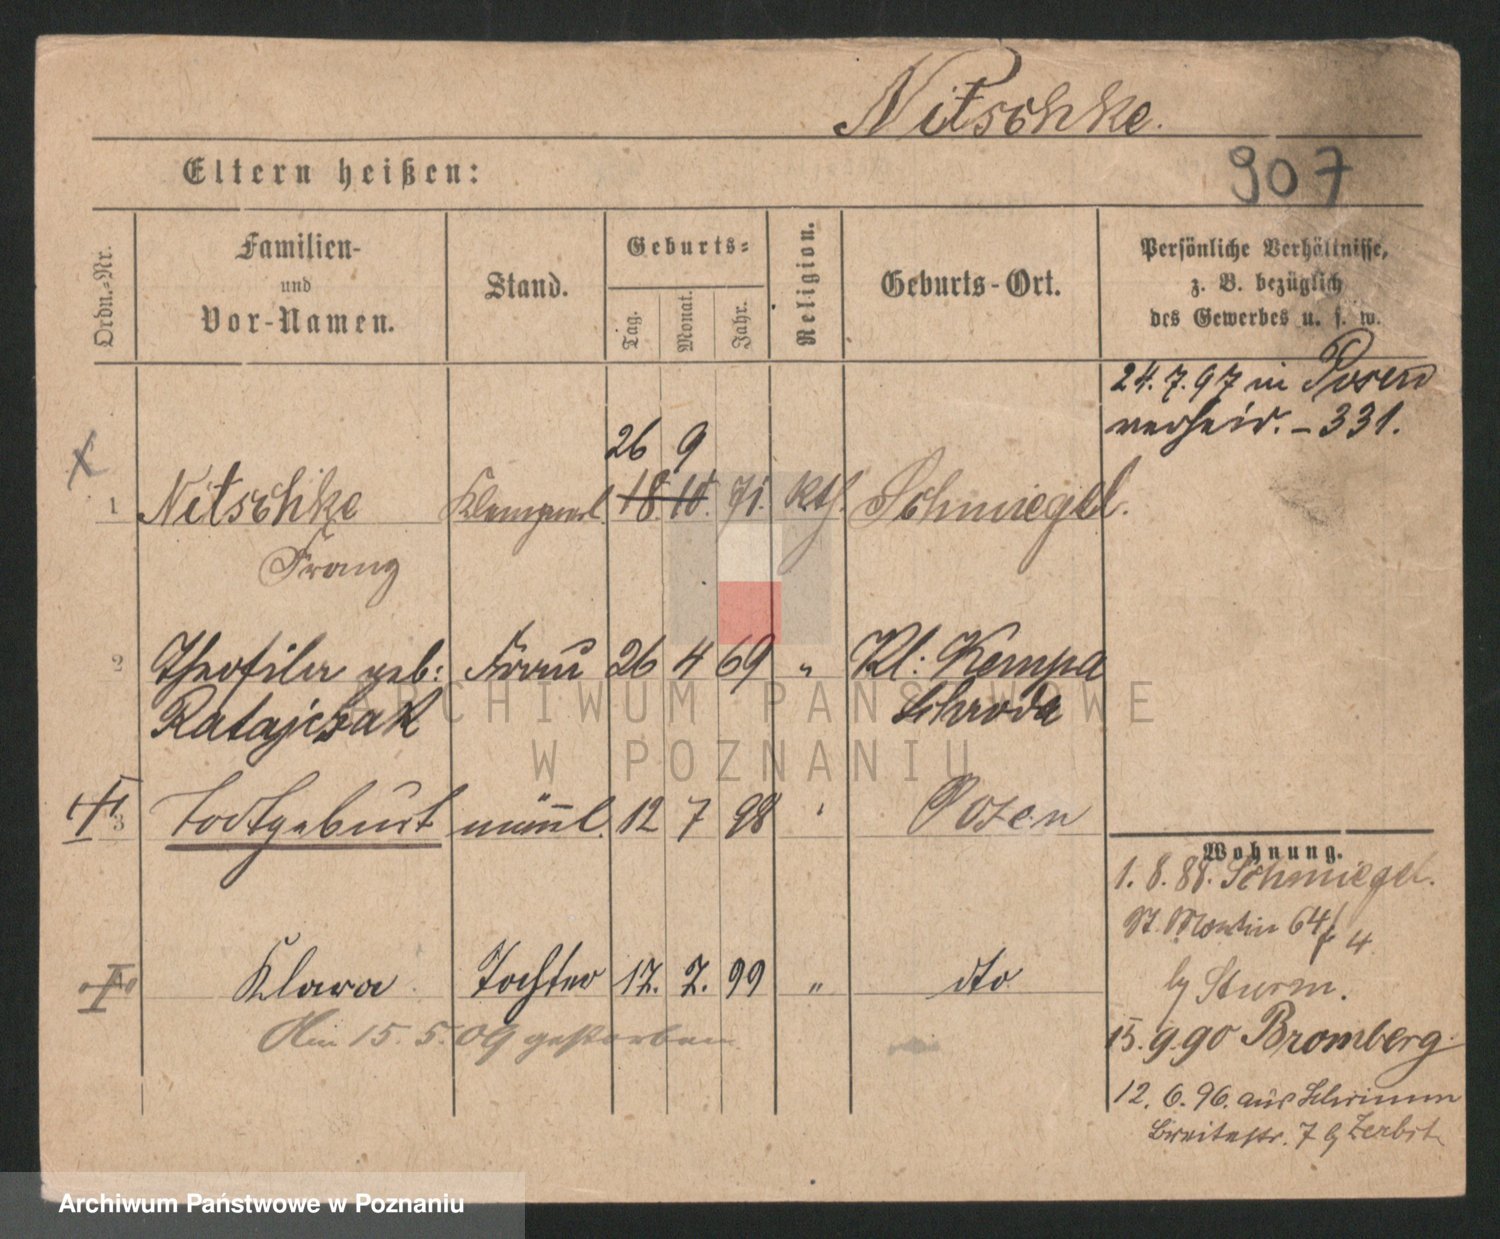 Nitschke.
Eltern heißen:
907
Ordn.-Nr.
Familien-
und
Vor-Namen.
Stand.
Geburts-
Tag.
Monat.
Jahr.
Religion.
Geburts-Ort.
Persönliche Verhältnisse,
z. B. bezüglich
des Gewerbes u. s. w.
24.7.97 in Posen
verheir. - 331.
26 9
1 Nitschke Klempnerl. 18. 10. 71. kth. Schmiegel.
Franz
2 Theofila geb: Frau 26 4 69 " Kl: Kempa
Ratajczak Schroda
3 Todtgeburt männl. 12 7 98 " Posen
Wohnung.
1. 8. 88. Schmiegel.
St. Martin 64/ 4.
by Sturm.
Klara Tochter 17. 7. 99 " dto
Am 15. 5. 09 gestorben
15. 9. 90 Bromberg.
12. 6. 96. aus Schrimm
Breitestr. 7 by Zerbst
ARCHIWUM PAŃSTWOWE
W POZNANIU
Archiwum Państwowe w Poznaniu